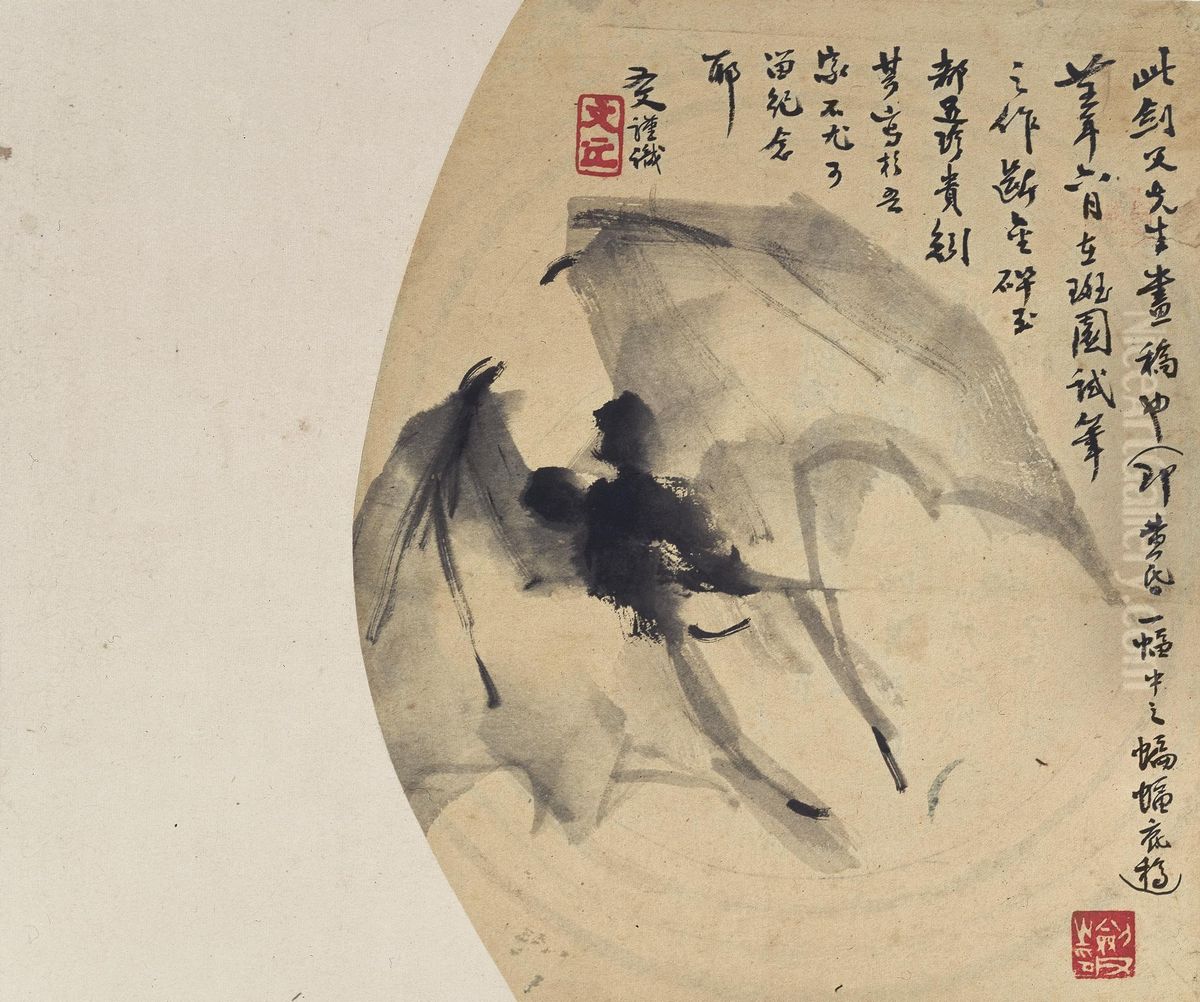 此劍父先生畫稿中（即黃昏一幅中之蝙蝠底稿）
廿年六月在斑園試筆
之作斷金碎玉
都至珍貴劍
其寫於吾
家不尤可
留紀念
耶
謹識
文正
NiceArtGallery.com